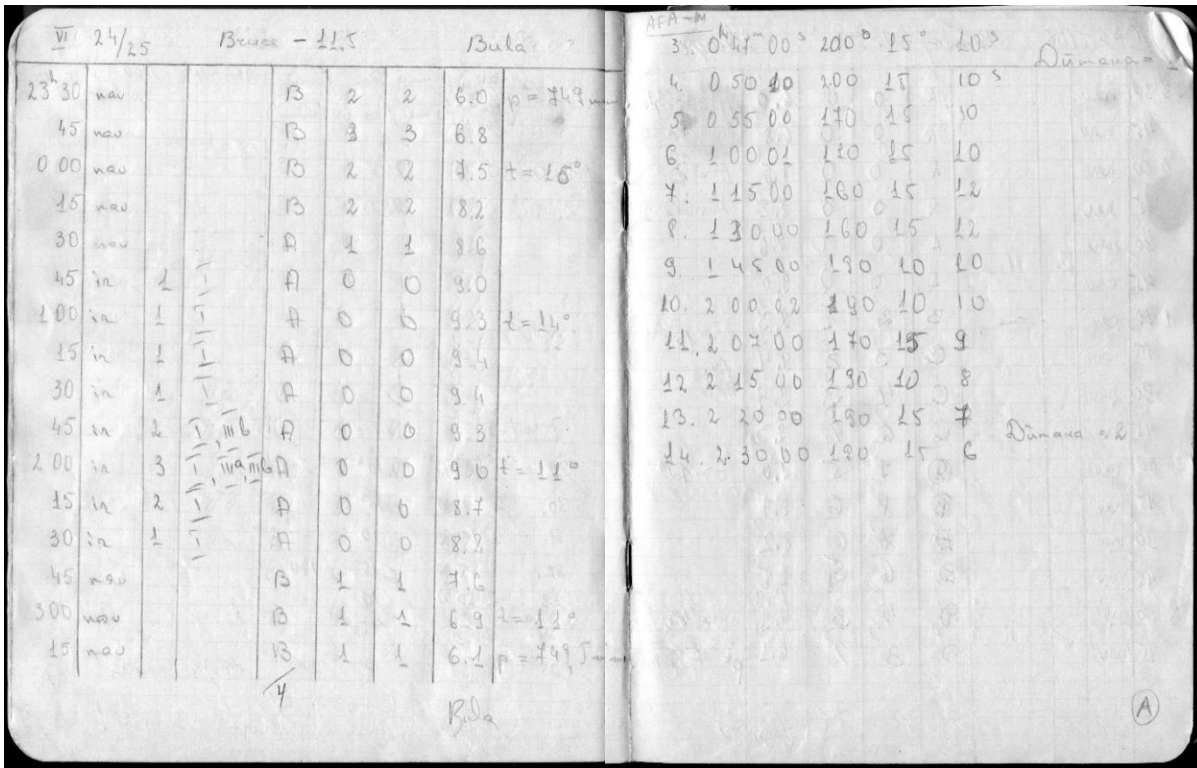 VI 24/25 Bruce – 11.5 Bula
23ʰ 30 nav B 2 2 6.0 p = 749 mm
45 nav B 3 3 6.8
0 00 nav B 2 2 7.5 t = 16°
15 nav B 2 2 8.2
30 nav A 1 1 8.6
45 ir 1 I A 0 0 9.0
1 00 ir 1 I A 0 0 9.3 t = 14°
15 ir 1 I A 0 0 9.4
30 ir 1 I A 0 0 9.4
45 ir 2 I, III b A 0 0 9.3
2 00 ir 3 I, III a, III b A 0 0 9.0 t = 11°
15 ir 2 I A 0 0 8.7
30 ir 1 I A 0 0 8.2
45 nav B 1 1 7.6
3 00 nav B 1 1 6.9 t = 11°
15 nav B 1 1 6.1 p = 749,5 mm
4
Bula
AFA-M
3. 0ʰ 47ᵐ 00ˢ 200° 15° 10ˢ
Dūmaka =
4. 0 50 10 200 15 10ˢ
5. 0 55 00 170 15 10
6. 1 00 01 15 10
7. 1 15 00 160 15 12
8. 1 30 00 160 15 12
9. 1 45 00 190 10 10
10. 2 00 02 190 10 10
11. 2 07 00 170 15 9
12 2 15 00 190 10 8
13. 2 20 00 190 15 7
Dūmaka = 2
14. 2 30 00 190 15 6
A